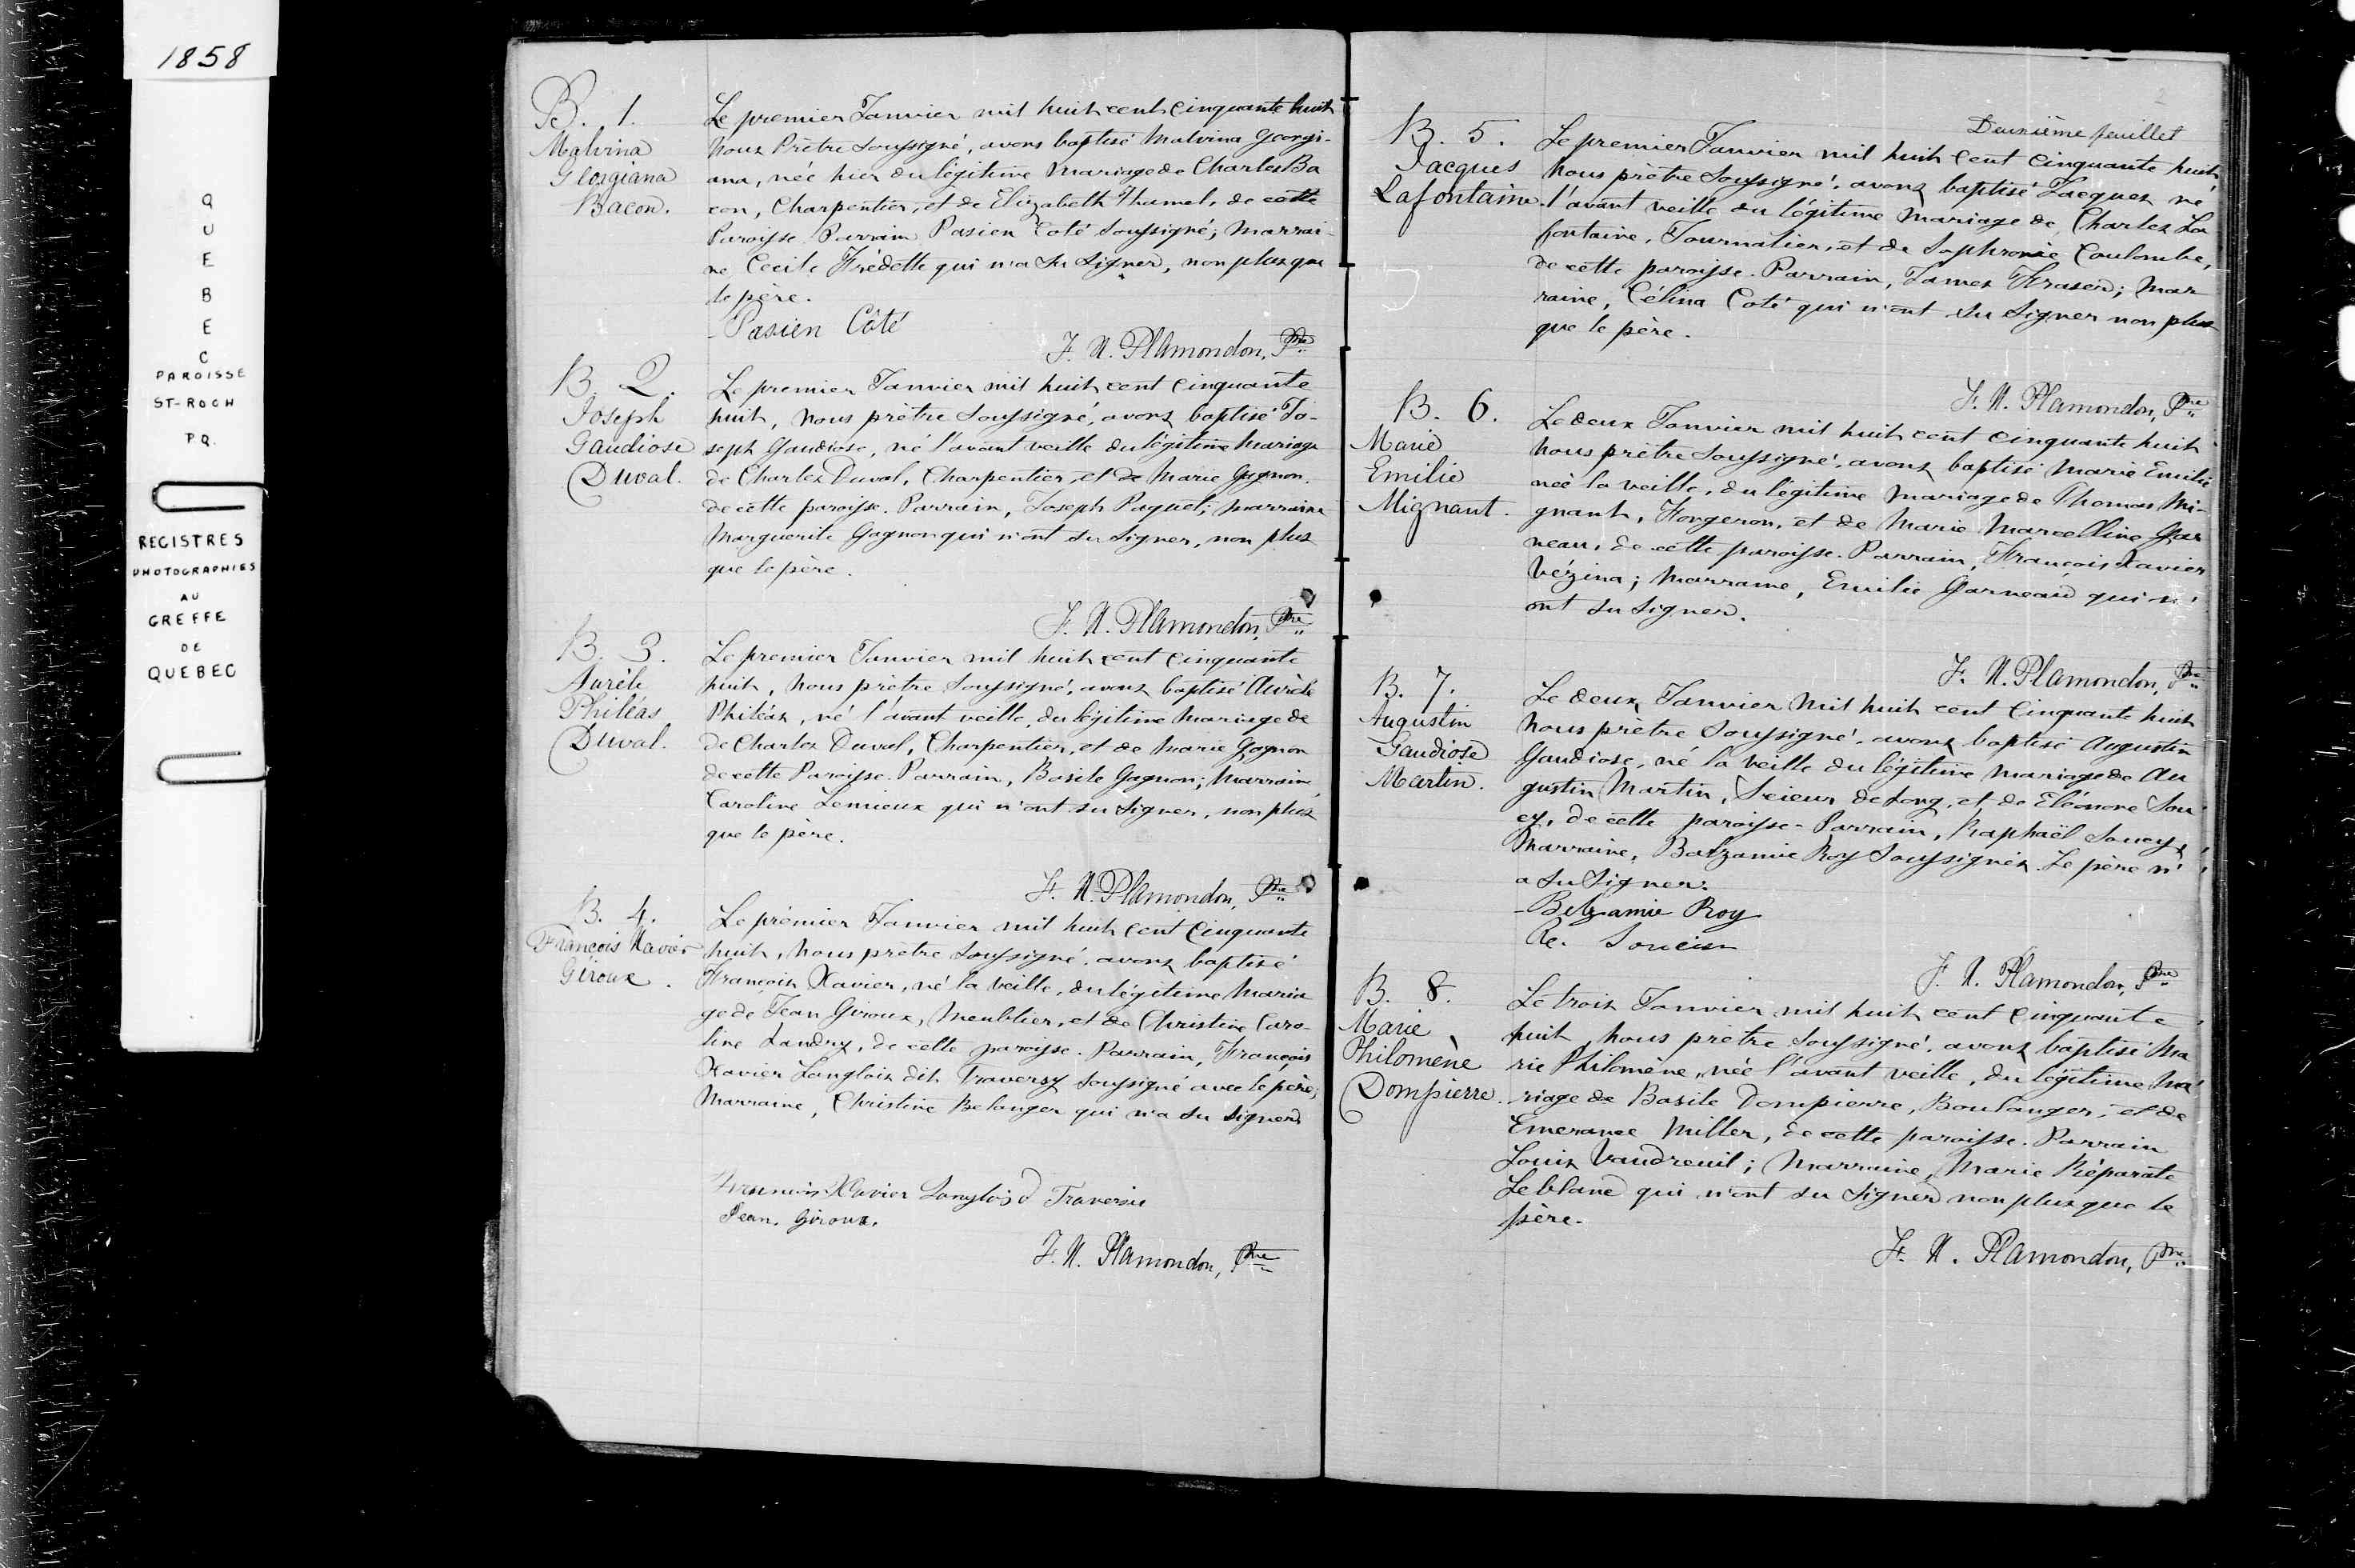 1858
QUEBEC
PAROISSE
ST-ROCH
PQ.
REGISTRES
PHOTOGRAPHIES
AU
GREFFE
DE
QUEBEC
B. 1.
Malvina
Georgiana
Bacon.
Le premier Janvier mil huit cent cinquante huit
Nous Prêtre Soussigné, avons baptisé Malvina Georgi-
ana, née hier du légitime Mariage de Charles Ba
con, Charpentier, et de Elizabeth Hamel, de cette
Paroisse. Parrain Pasien Coté Soussigné; Marrai-
ne, Cecile Frédette qui n'a su signer, non plus que
le père.
Pasien Côté
F. N. Plamondon, Ptre
B. 2.
Joseph
Gaudiose
Duval.
Le premier Janvier mil huit cent cinquante
huit, nous prêtre soussigné, avons baptisé Jo-
seph Gaudiose, né l'avant veille du légitime Mariage
de Charles Duval, Charpentier, et de Marie Gagnon.
de cette paroisse. Parrain, Joseph Paquet; marraine
Marguerite Gagnon qui n'ont su signer, non plus
que le père.
F. N. Plamondon, Ptre
B. 3.
Aurèle
Philéas
Duval.
Le premier Janvier mil huit cent cinquante
huit, nous prêtre soussigné, avons baptisé Aurèle
Philéas, né l'avant veille, du légitime Mariage de
de Charles Duval, Charpentier, et de Marie Gagnon
de cette Paroisse. Parrain, Basile Gagnon; Marraine
Caroline Lemieux qui n'ont su signer, non plus
que le père.
F. N. Plamondon, Ptre
B. 4.
François Xavier
Giroux.
Le premier Janvier mil huit cent cinquante
huit, nous prêtre soussigné, avons baptisé
François Xavier, né la veille, du légitime Maria
ge de Jean Giroux, Meublier, et de Christine Caro-
line Landry, de cette paroisse. Parrain, François
Xavier Langlois dit Traversy soussigné avec le père;
Marraine, Christine Belanger qui n'a su signer
François Xavier Langlois d Traversie
Jean. Giroux.
F. N. Plamondon, Ptre
2
Deuxième feuillet
B. 5.
Jacques
Lafontaine.
Le premier Janvier mil huit cent cinquante huit
nous prêtre soussigné, avons baptisé Jacques né
l'avant veille du légitime Mariage de Charles La
fontaine, Journalier, et de Sophronie Coulombe,
de cette paroisse. Parrain, James Fraser; Mar
raine, Célina Coté qui n'ont su signer non plus
que le père.
F. N. Plamondon, Ptre
B. 6.
Marie
Emilie
Mignant.
Le deux Janvier mil huit cent cinquante huit
nous prêtre soussigné, avons baptisé Marie Emilie
née la veille, du légitime Mariage de Thomas Mi-
gnant, Forgeron, et de Marie Marcelline Gar
neau, de cette paroisse. Parrain, François Xavier
Vézina; Marraine, Emilie Garneau qui n'
ont su signer.
F. N. Plamondon, Ptre
B. 7.
Augustin
Gaudiose
Martin.
Le deux Janvier mil huit cent cinquante huit
nous prêtre soussigné, avons baptisé Augustin
Gaudiose, né la veille du légitime Mariage de Au
gustin Martin, Scieur de Long, et de Eléonore Sou
cy, de cette paroisse. Parrain, Raphaël Soucy,
Marraine, Balzamie Roy Soussignés. Le père n'
a su signer.
Belzamie Roy
Re. Soucie
F. N. Plamondon, Ptre
B. 8.
Marie
Philomène
Dompierre.
Le trois Janvier mil huit cent cinquante
huit nous prêtre soussigné, avons baptisé Ma
rie Philomène, née l'avant veille, du légitime Ma
riage de Basile Dompierre, Boulanger, et de
Emerance Miller, de cette paroisse. Parrain
Louis Vaudreuil; Marraine, Marie Réparate
Leblanc qui n'ont su signer non plus que le
père.
F. N. Plamondon, Ptre